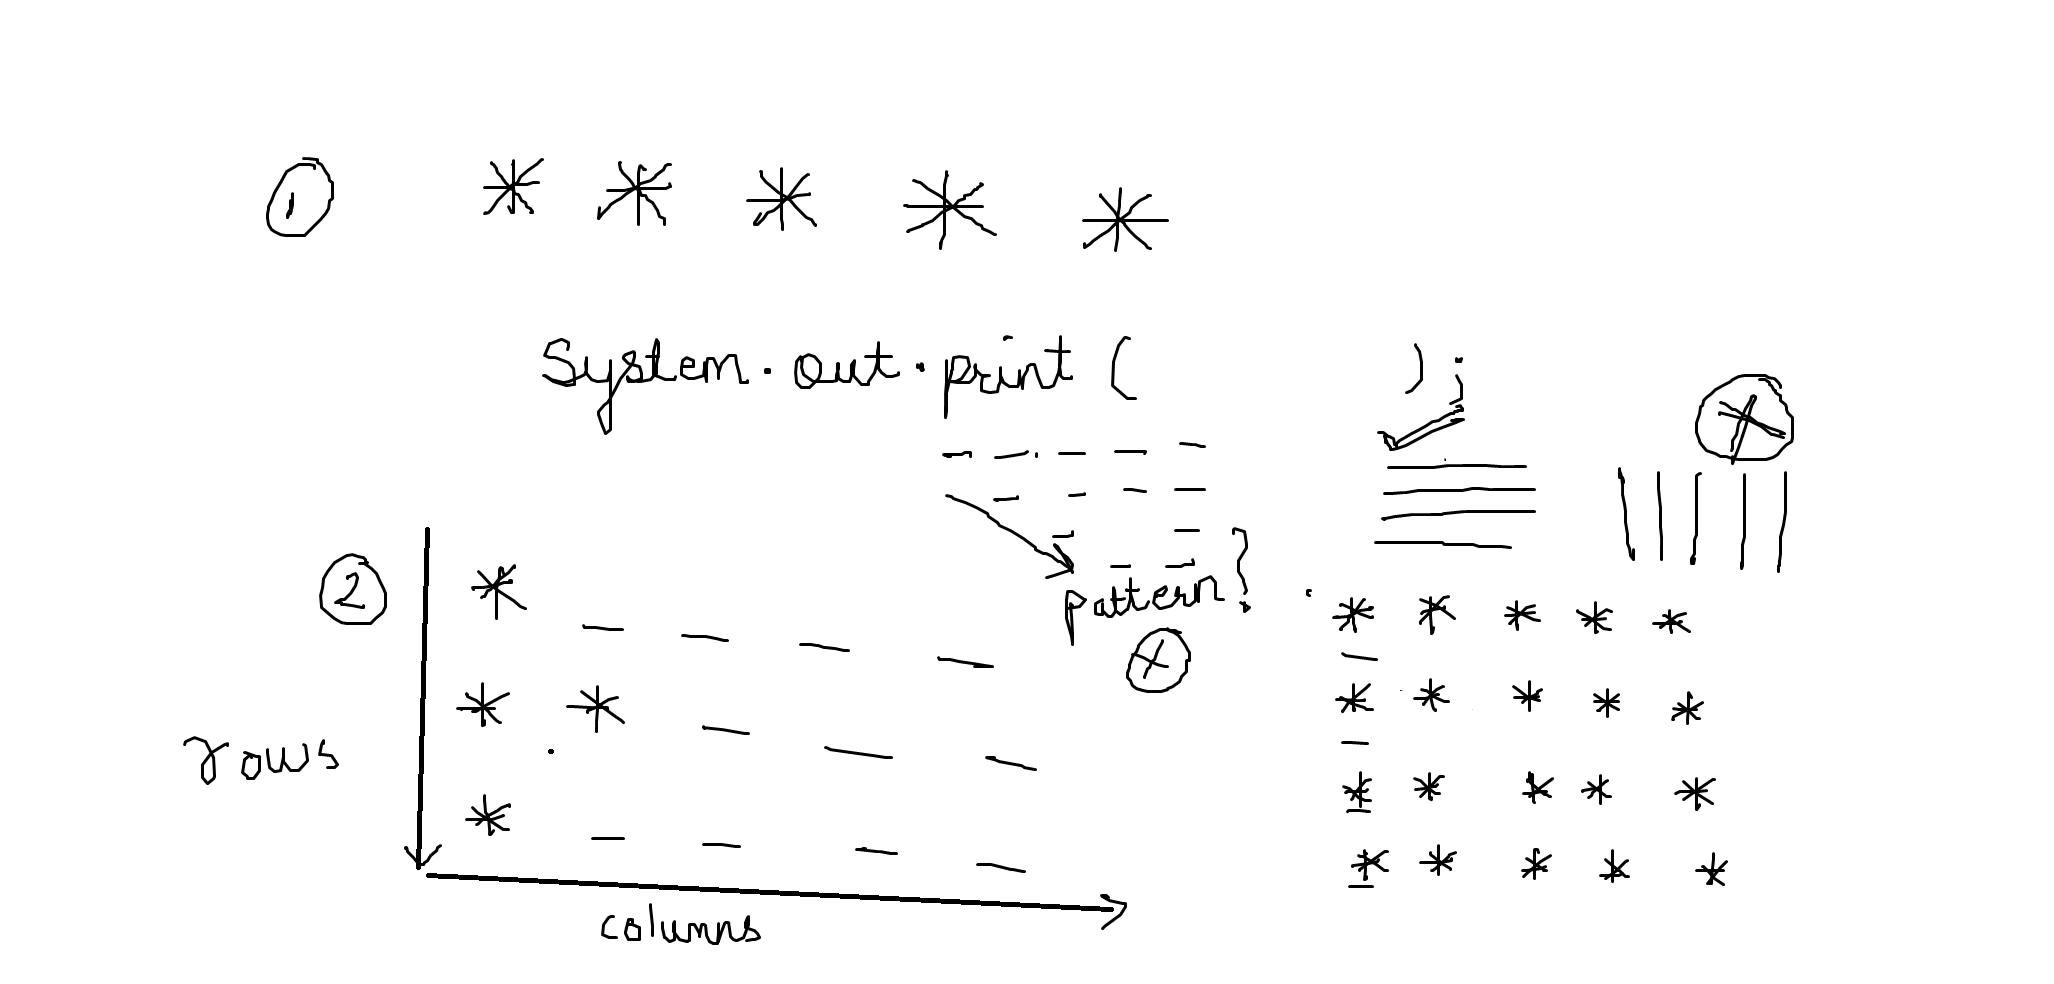 1 * * * * *
System.out.print( );
pattern?
2 *
* *
*
rows
columns
* * * * *
* * * * *
* * * * *
* * * * *